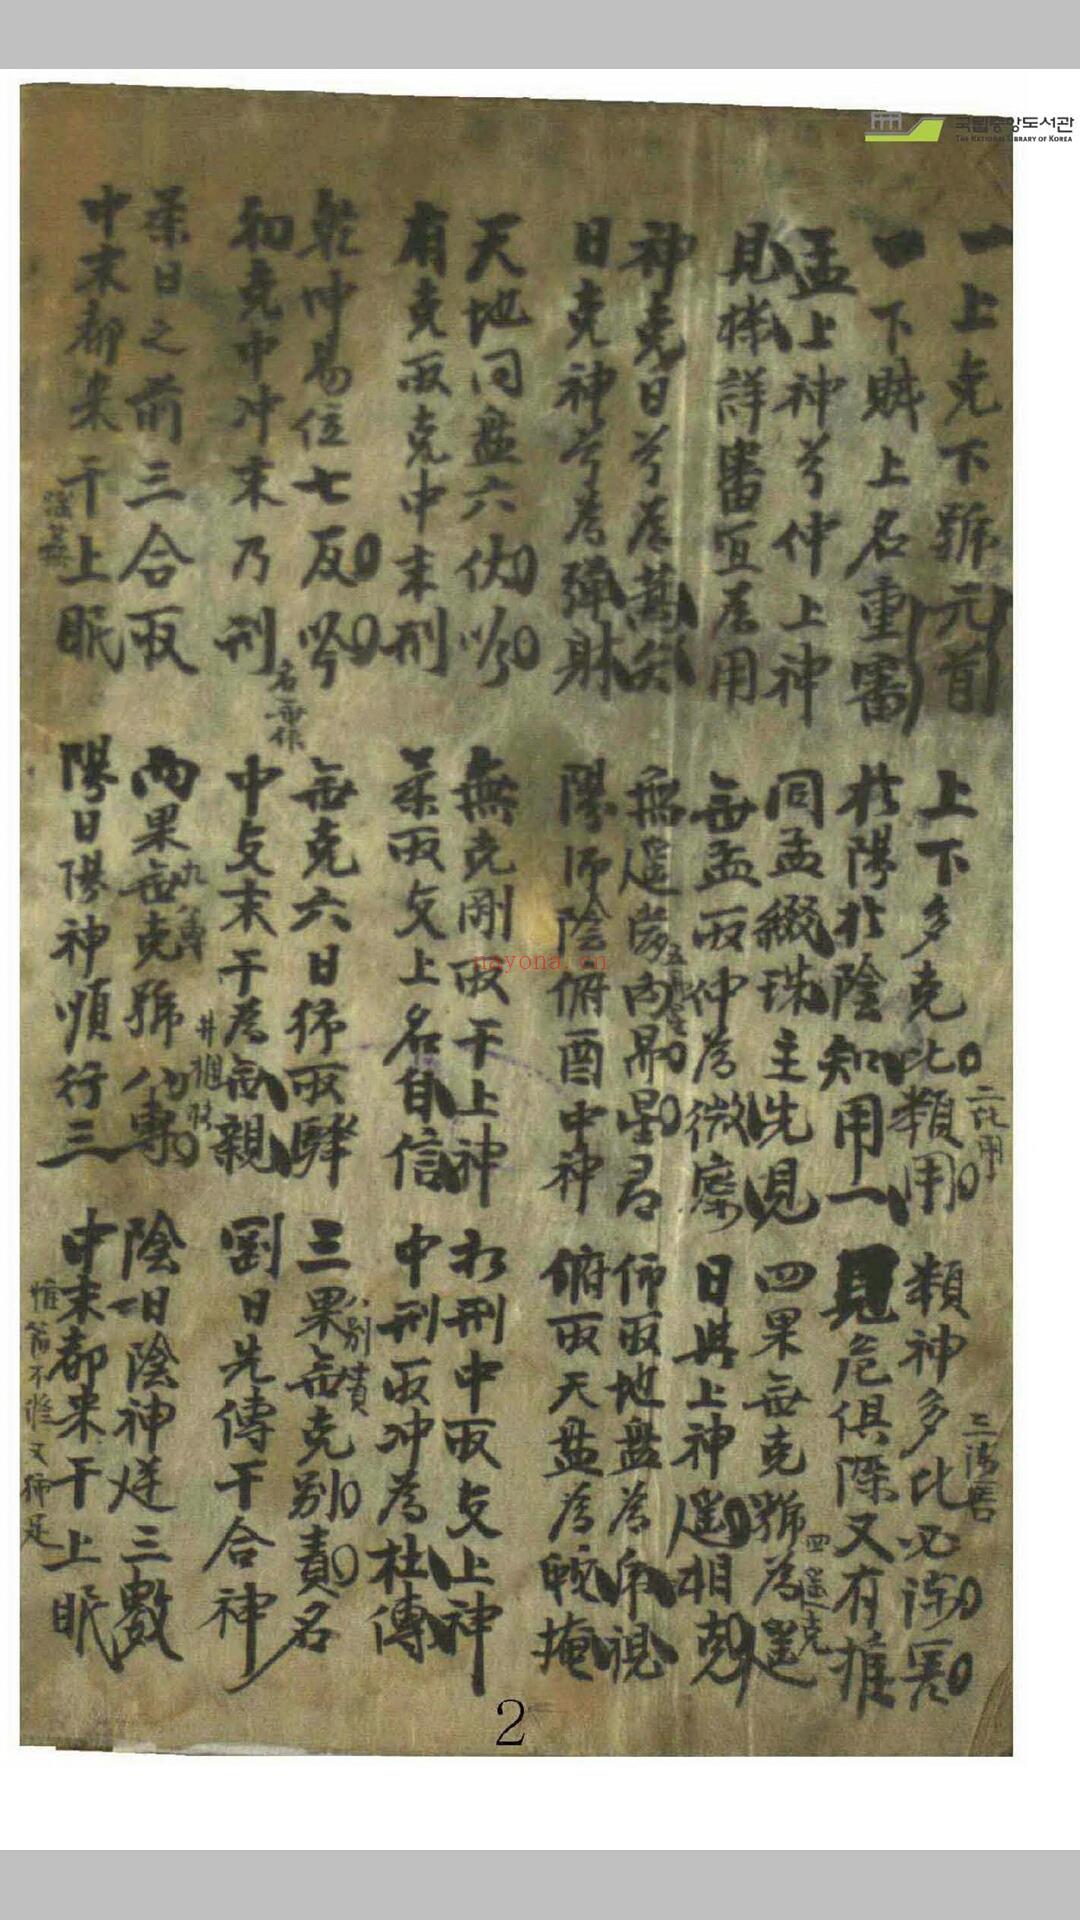 국립중앙도서관
THE NATIONAL LIBRARY OF KOREA
一上克下號元首
上下多克比類用
二比用
類神多比必涉害
三涉害
一下賊上名重審
於陽於陰知用一
見危俱深又有推
孟上神兮仲上神
同孟綴珠主先見
四果無克號為遥
四遥克
見機詳審宜爲用
無孟取仲為微
日與上神遥相克
神克日兮爲蒿矢
無遥
昴星
仰取地盤為虎視
日克神兮爲彈射
陽师陰俯酉中神
俯取天盤為
掩
天地同盤六伏吟
無克剛取干上神
初刑中取支上神
有克取克中末刑
柔取支上名自信
中刑取冲為杜傳
乾坤易位七反吟
無克六日
取驛
三果無克別責名
八別責
初克中冲末乃刑
名無依
中支末干為無親
剛日先傳干合神
柔日之前三合取
兩果無克號八專
九專
陰日陰神逆三數
中末都来干上眠
陽日陽神順行三
中末都来干上眠
惟
不
又
足
nayona.cn
2